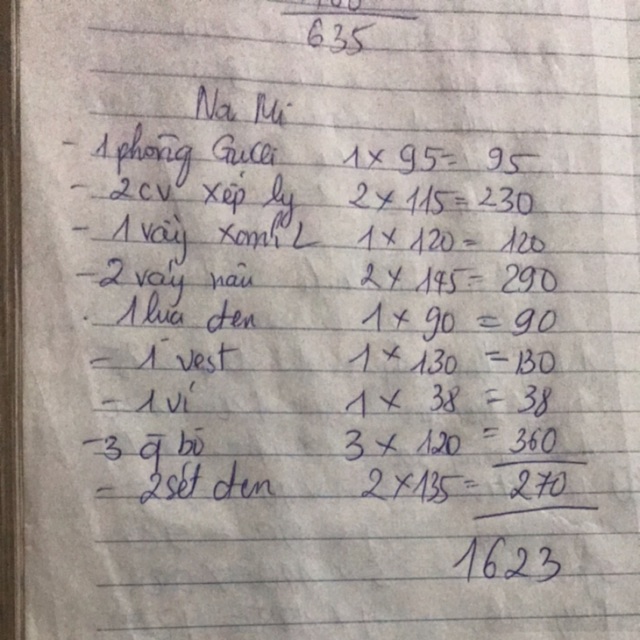 635
Na Mi
- 1 phông Gucci 1 × 95 = 95
- 2 cv xếp ly 2 × 115 = 230
- 1 váy xomi L 1 × 120 = 120
- 2 váy nâu 2 × 145 = 290
- 1 lụa đen 1 × 90 = 90
- 1 vest 1 × 130 = 130
- 1 ví 1 × 38 = 38
- 3 q bò 3 × 120 = 360
- 2 sét đen 2 × 135 = 270
1623